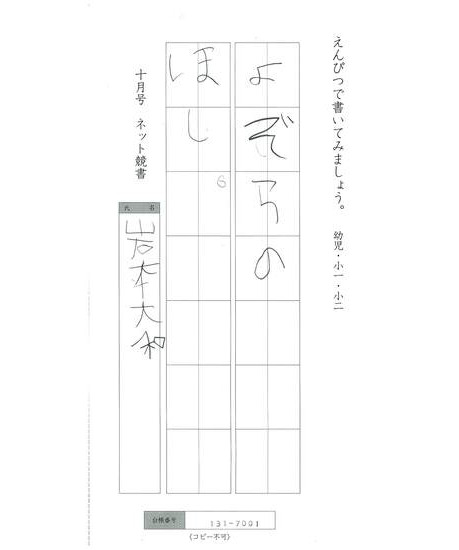 えんぴつで書いてみましょう。 幼児・小一・小二
よぞらの
ほし。
十月号 ネット競書
氏名
岩本大和
台帳番号 131-7001
(コピー不可)